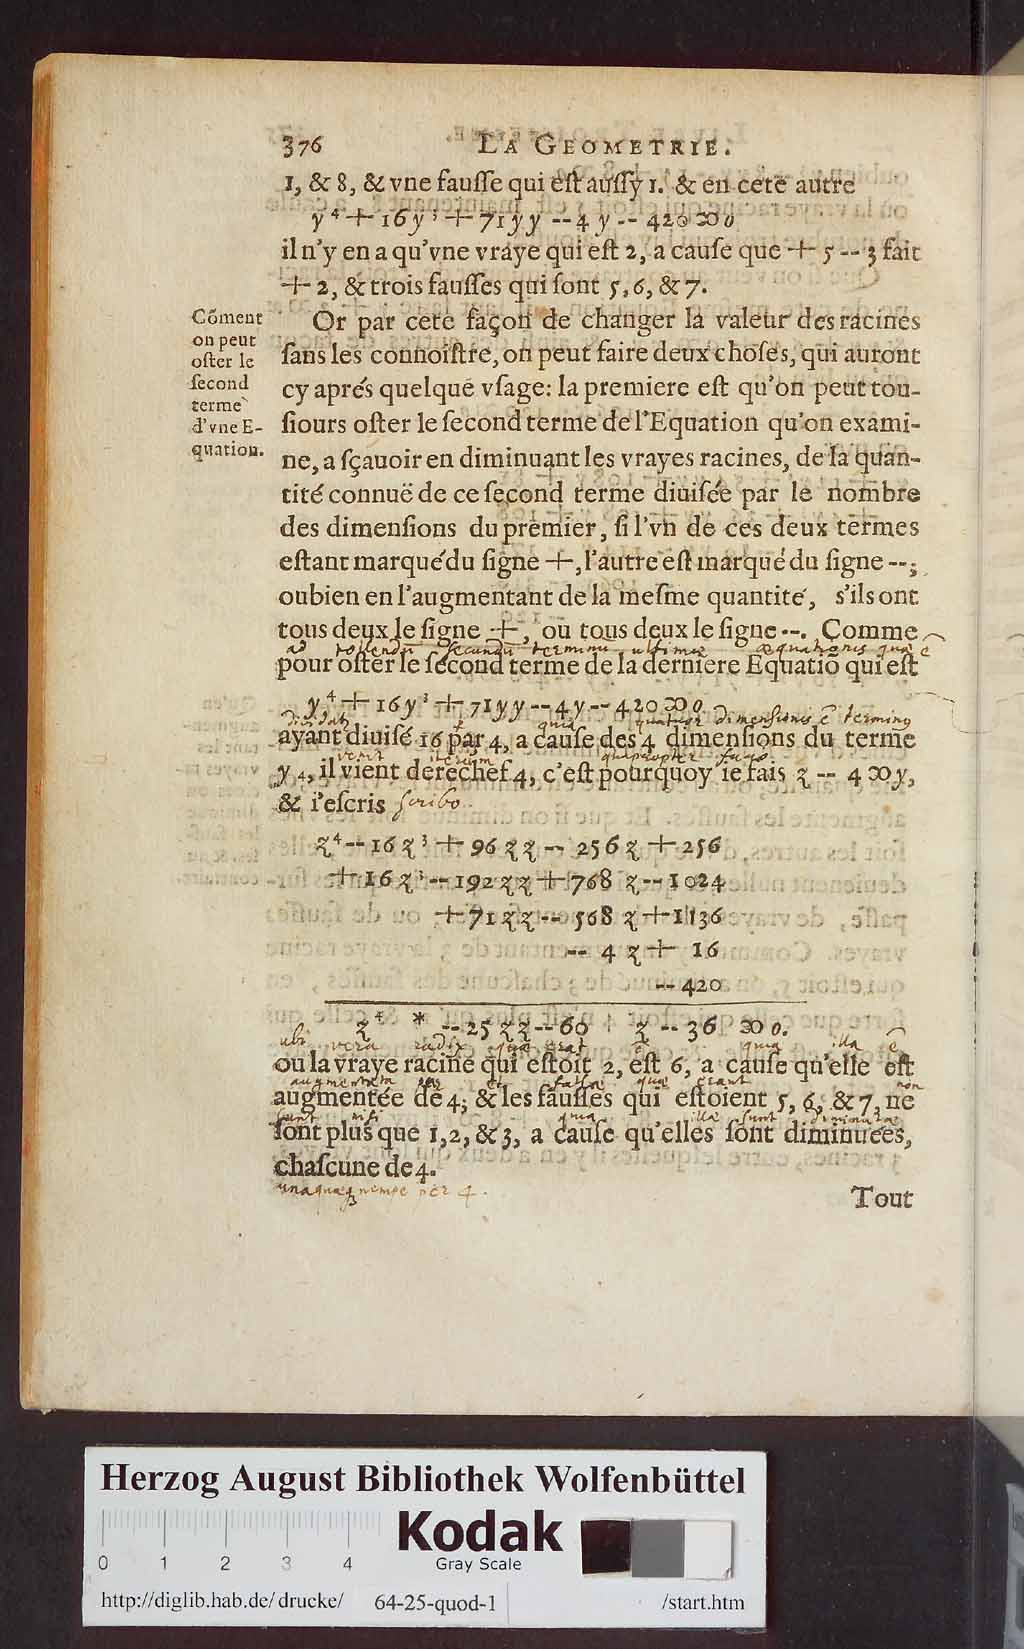 376 LA GEOMETRIE.
1, & 8, & vne fauſſe qui eſt auſſy 1. & en cete autre
y⁴ + 16y³ + 71yy -- 4y -- 420 ∞ 0
il n'y en a qu'vne vraye qui eſt 2, a cauſe que + 5 -- 3 fait
+ 2, & trois fauſſes qui ſont 5, 6, & 7.
Cõment
on peut
oſter le
ſecond
terme
d'vne E-
quation.
Or par cete façon de changer la valeur des racines
ſans les connoiſtre, on peut faire deux choſes, qui auront
cy aprés quelque vſage: la premiere eſt qu'on peut tou-
ſiours oſter le ſecond terme de l'Equation qu'on exami-
ne, a ſçauoir en diminuant les vrayes racines, de la quan-
tité connuë de ce ſecond terme diuiſée par le nombre
des dimenſions du premier, ſi l'vn de ces deux termes
eſtant marqué du ſigne +, l'autre eſt marqué du ſigne --;
oubien en l'augmentant de la meſme quantité, s'ils ont
tous deux le ſigne +, ou tous deux le ſigne --. Comme
ad tollendũ secundũ terminũ ultimæ æquationis quæ ẽ
pour oſter le ſecond terme de la derniere Equatiõ qui eſt
y⁴ + 16y³ + 71yy -- 4y -- 420 ∞ 0
quia quatuor dimensionis ẽ terminus
ayant diuiſé 16 par 4, a cauſe des 4 dimenſions du terme
venit iterum quapropter facio
y 4, il vient derechef 4, c'eſt pourquoy ie fais z -- 4 ∞ y,
& i'eſcris scribo.
z⁴ -- 16z³ + 96zz -- 256z + 256
+ 16z³ -- 192zz + 768z -- 1024
+ 71zz -- 568z + 1136
-- 4z + 16
-- 420
z⁴ * -- 25zz -- 60 z -- 36 ∞ 0.
ubi vera radix quæ erat ẽ quia illa ẽ
ou la vraye racine qui eſtoit 2, eſt 6, a cauſe qu'elle eſt
augmentata per et falsæ quæ erant non
augmentée de 4; & les fauſſes qui eſtoient 5, 6, & 7, ne
sunt nisi quia illæ sunt diminutæ
ſont plus que 1, 2, & 3, a cauſe qu'elles ſont diminuées,
chaſcune de 4.
unaquæq nempe per 4.
Tout
Herzog August Bibliothek Wolfenbüttel
Kodak
Gray Scale
0 1 2 3 4
http://diglib.hab.de/drucke/ 64-25-quod-1 /start.htm